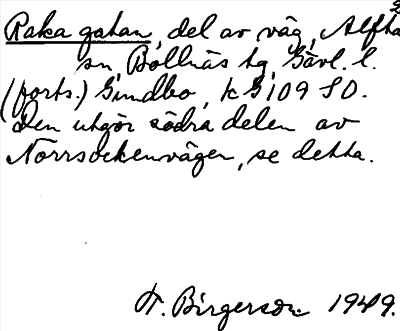 Raka gatan, del av väg, Alfta
sn, Bollnäs tg, Gävl. l.
(forts.) Gundbo, k G 109 SO.
Den utgör södra delen av
Norrsockenvägen, se detta.
F. Birgerson 1949.